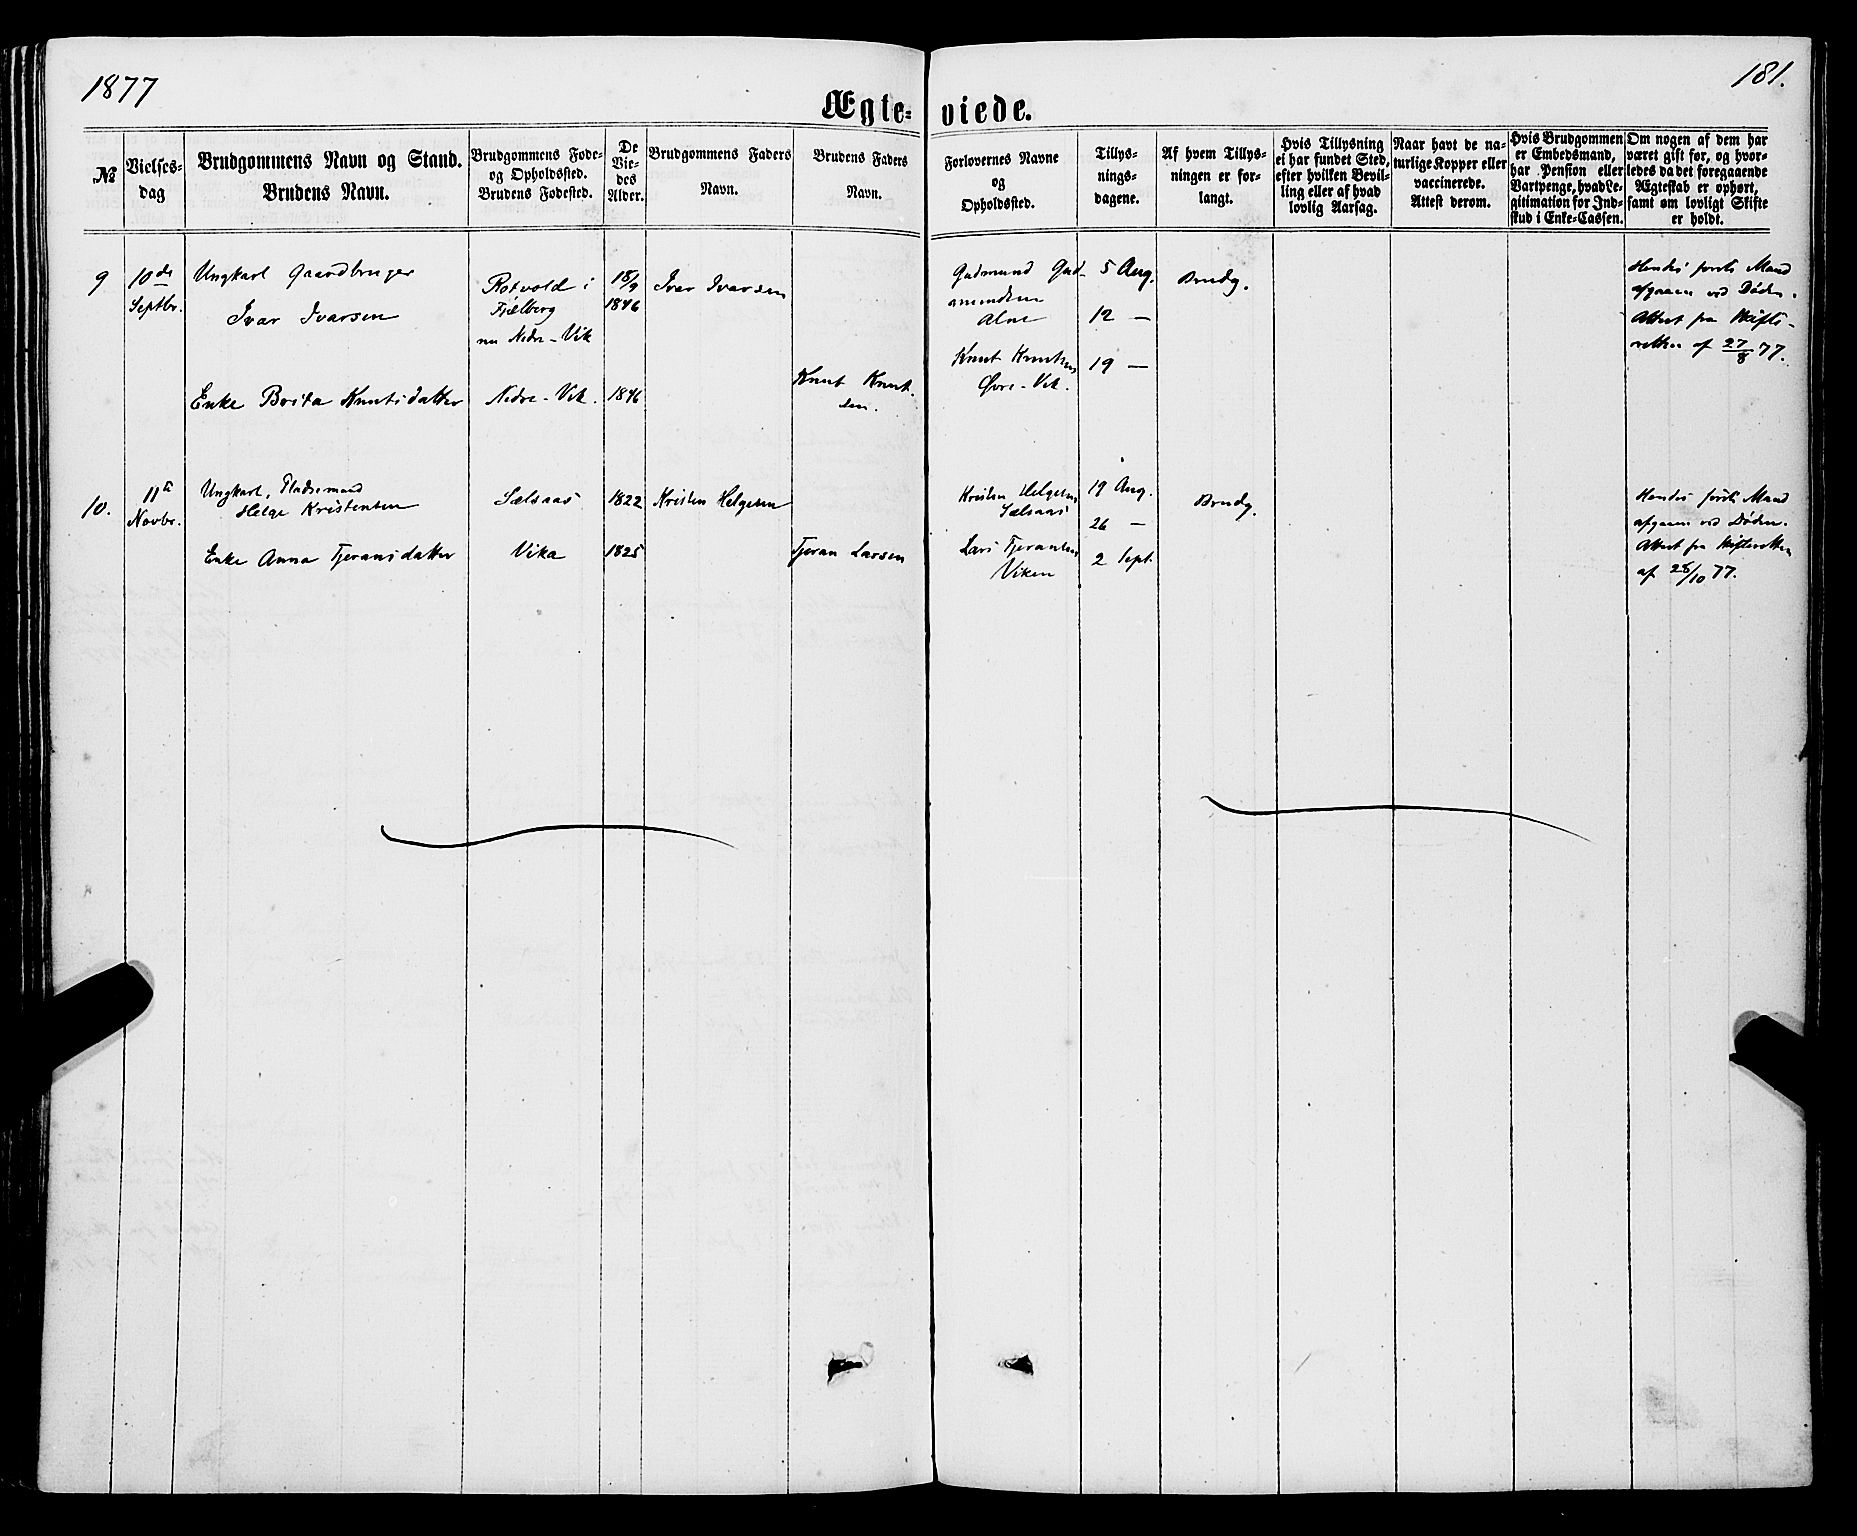 1877
181.
Ægte-viede.
№
Vielses-dag
Brudgommens Navn og Stand.
Brudens Navn.
Brudgommens Føde-
og Opholdssted.
Brudens Fødested.
De
Vie-
des
Alder.
Brudgommens Faders
Navn.
Brudens Faders
Navn.
Forlovernes Navne
og
Opholdssted.
Tillys-
nings-
dagene.
Af hvem Tillys-
ningen er for-
langt.
Hvis Tillysning
ei har fundet Sted,
efter hvilken Bevil-
ling eller af hvad
lovlig Aarsag.
Naar havt de na-
turlige Kopper eller
vaccinerede.
Attest derom.
Hvis Brudgommen
er Embedsmand,
har Pension eller
Vartpenge, hvad Le-
gitimation for Ind-
skud i Enke-Cassen.
Om nogen af dem har
været gift før, og hvor-
ledes da det foregaaende
Ægteskab er ophørt,
samt om lovligt Skifte
er holdt.
9
10de
Septbr.
Ungkarl Gaardbruger
Ivar Ivarsen
Rotvold i
Fjelberg
nu Nedre-Vik
18/9
1846
Ivar Ivarsen
Gudmund Gud-
mundsen
Alne
Knut Knutsen
Øvre-Vik.
5 Aug.
12 —
19 —
Brudg.
Hendes første Mand
afgaaen ved Døden.
Attest fra Skifte-
retten af 27/8 77.
Enke Brita Knutsdatter
Nedre-Vik.
1846
Knut Knut-
sen.
10.
11te
Novbr.
Ungkarl, Pladsemand
Helge Kristensen
Sælsaas
1822
Kristen Helgesen
Kristen Helgesen
Sælsaas
Lars Tjeransen
Viken
19 Aug.
26 —
2 Sept.
Brudg.
Hendes første Mand
afgaaen ved Døden.
Attest fra Skifteretten
af 28/10 77.
Enke Anna Tjeransdatter
Vika
1825
Tjeran Larsen